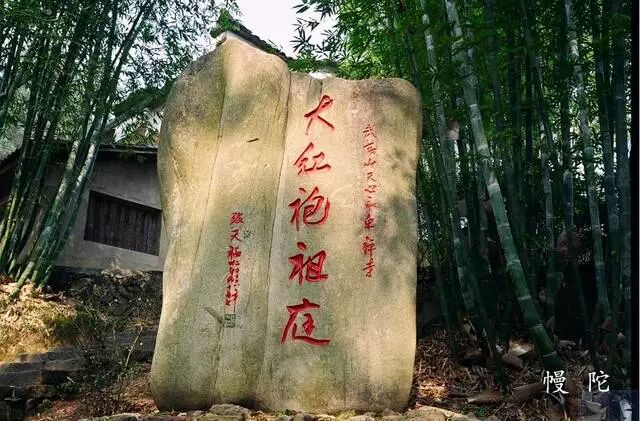 武夷山天心永乐禅寺
大红袍祖庭
慢陀